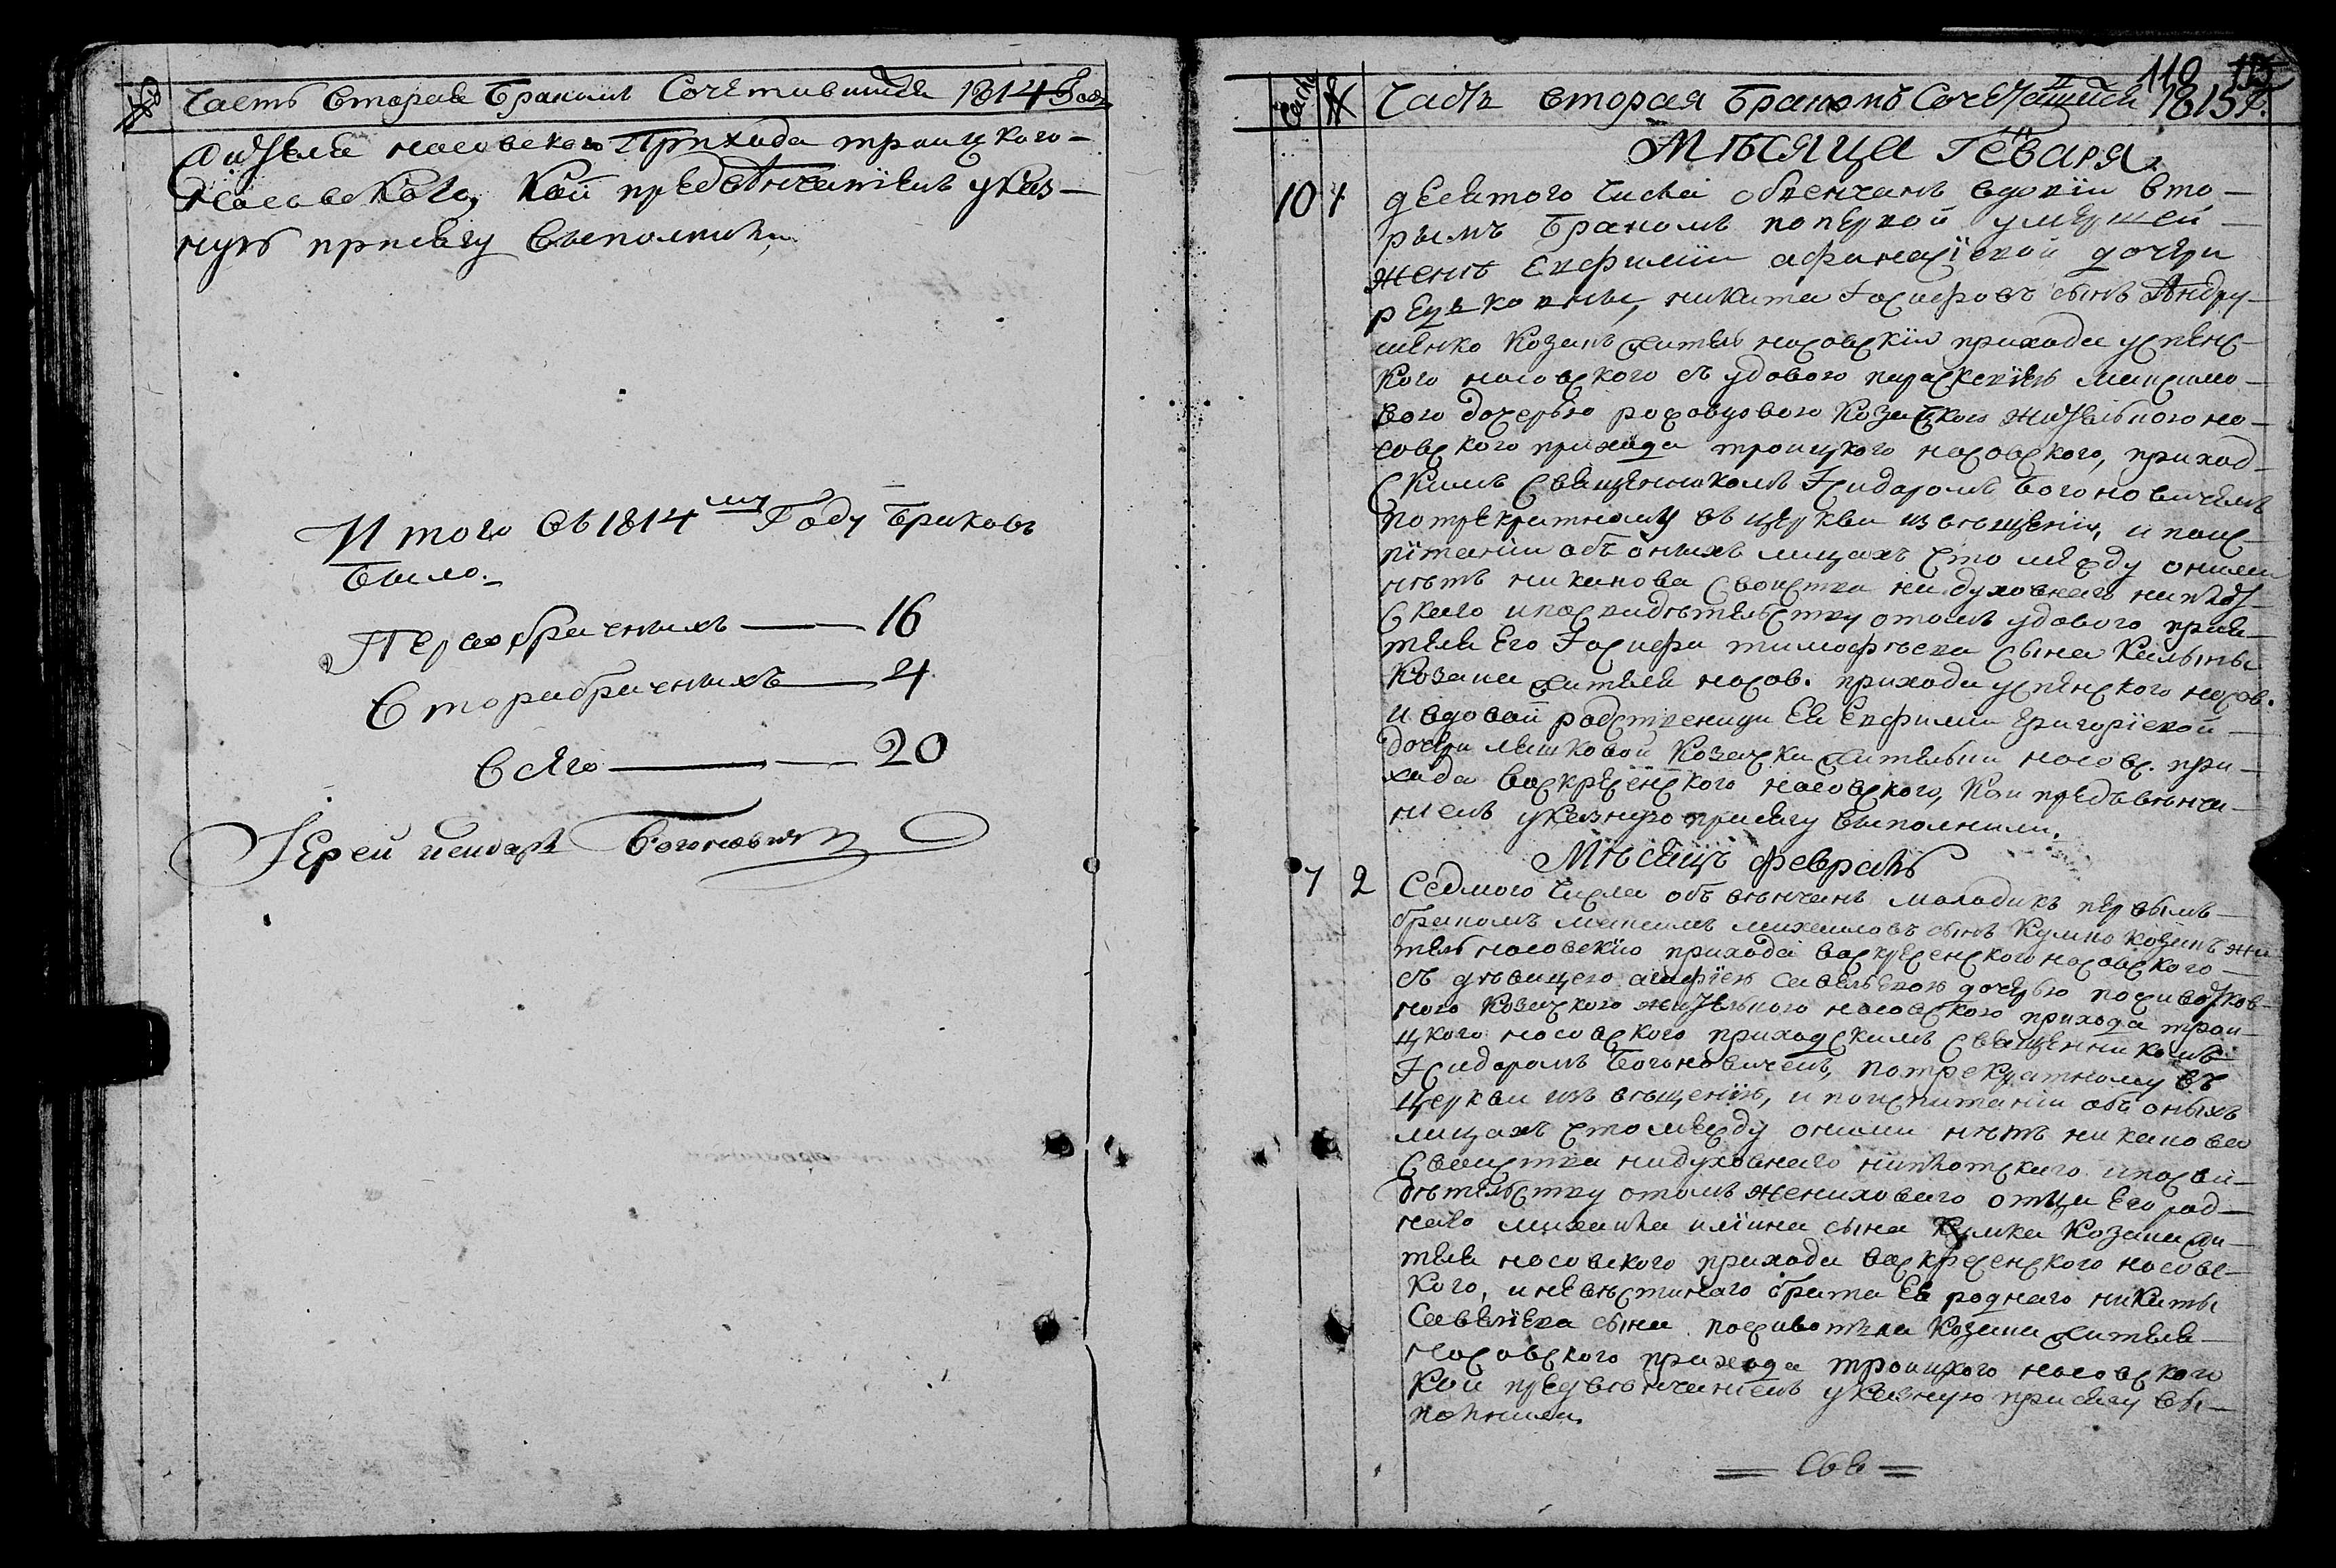 № Часть вторая Бракомъ Сочетавшися 1814 Года
жителя носовского Прихода троицкого
носовского, кои предвѣнчаніемъ указ-
ную присягу выполнили
Итого въ 1814му Году браковъ
было
Первобрачныхъ — 16
Второбрачныхъ — 4
Всего — 20
Іерей Исидоръ Богоновичъ
119 113
Числа № Часть вторая Бракомъ Сочетащися 1815 г.
Мѣсяца Генваря
10 1 десятого числа обвенчанъ вдовій вто-
рымъ бракомъ попервой умершей
женѣ Евфиміи афанасіевой дочери
никита Іосифовъ сынъ Андру-
шенко козакъ житель носовскій прихода успенс-
кого носовского съ удовою параскевіею максимо-
вого дочерью козацкою жительною но-
совского прихода троицкого носовского, приход-
скимъ священникомъ Ісидоромъ Богоновичемъ
потрекратному въ церкви извѣщенію, и поис-
питаніи объ оныхъ лицахъ что между оними
нѣтъ никакова свойства нидуховнаго ниплот-
скаго ипосвидѣтельству отомъ удового прия-
теля Его Іосифа тимофѣева сына Калыны
козака жителя носов. прихода успенского носов.
и вдовой родственици Ея Евфиміи григоріевой
дочери козачки жительки носовс. при-
хода воскресенского носовского, Кои предъвѣнча-
ніемъ указную присягу выполнили.
Мѣсяцъ февраль
7 2 Седмого числа объ вѣнчанъ молодикъ первымъ
бракомъ михаиловъ сынъ Кулко козакъ жи-
тель носовскію прихода воскресенского носовского
съ дѣвицею агафіею савельевою дочерью
ного козацкого жительного носовского прихода трои-
цкого носовского приходскимъ священникомъ
Ісидоромъ Богоновичемъ, потрекратному въ
церкви изъ вѣщенію, и поиспитаніи объ оныхъ
лицахъ что между оними нѣтъ никакова
Свойства нидуховнаго ниплотскаго ипосви-
дѣтельству отомъ женихового отца Его род-
наго михаила иліина сына Кулка козака жи-
теля носовского прихода воскресенского носовс-
кого, иневѣстинаго брата Ея роднаго никиты
Савеліева сына козака жителя
носовского прихода троицкого носовского
кои предвѣнчаніемъ указную присягу вы-
полнили.